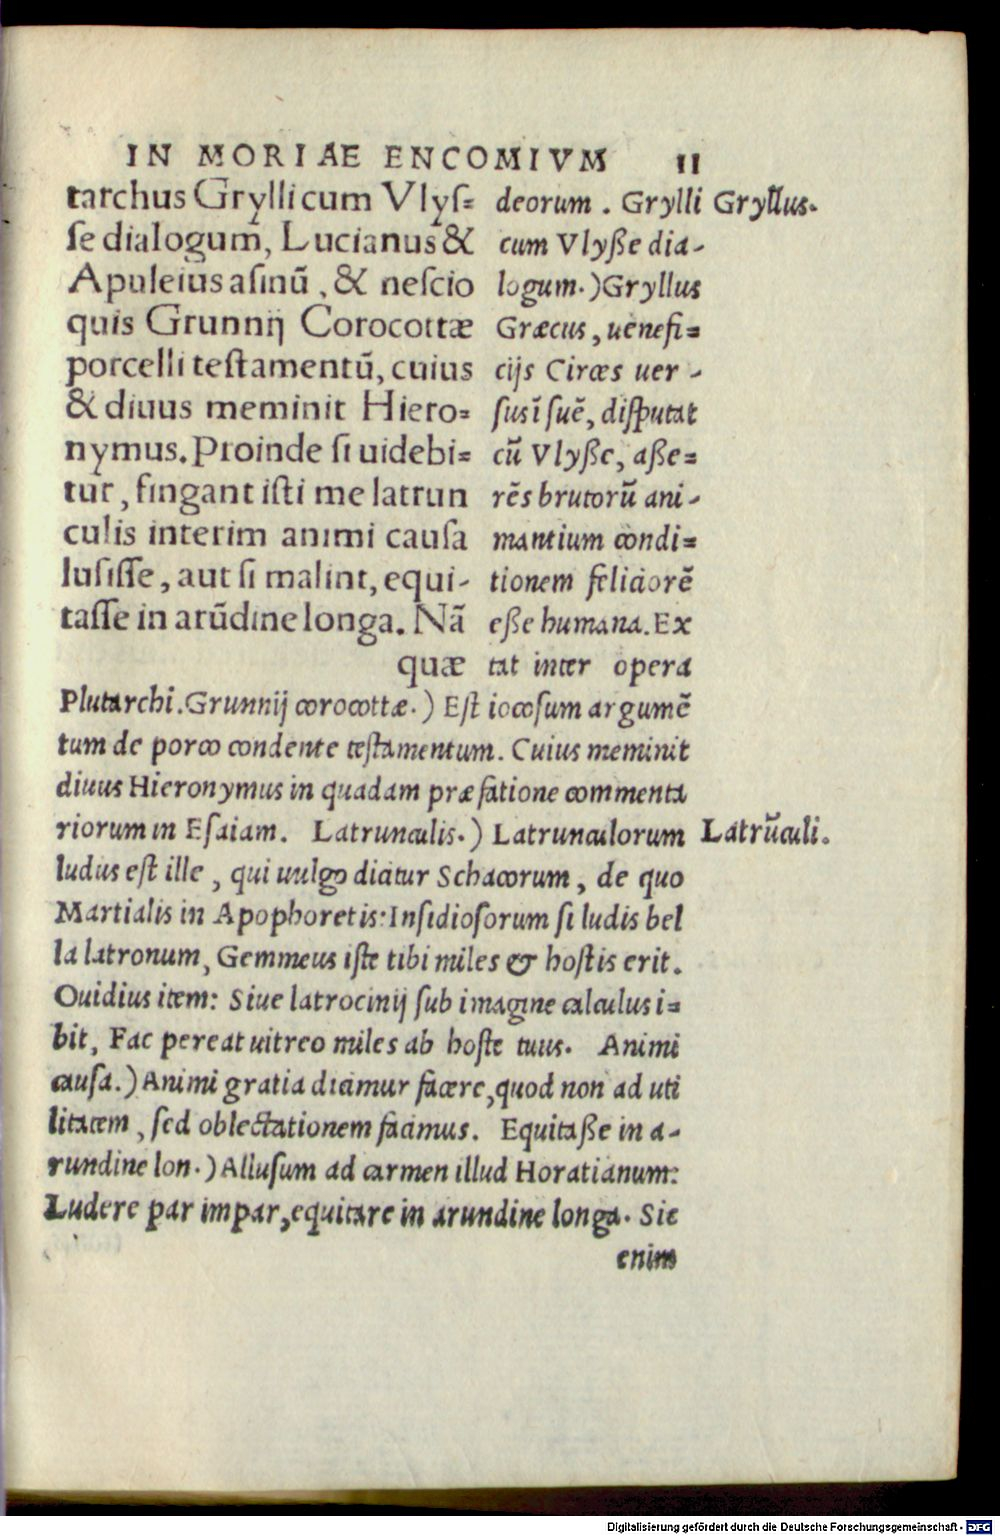 IN MORIAE ENCOMIVM 11
tarchus Grylli cum Vlyſ=
ſe dialogum, Lucianus &
Apuleius asinũ, & neſcio
quis Grunnij Corocottæ
porcelli teſtamentũ, cuius
& diuus meminit Hiero=
nymus. Proinde ſi uidebi=
tur, fingant iſti me latrun
culis interim animi cauſa
luſiſſe, aut ſi malint, equi-
taſſe in arũdine longa. Nã
quæ
deorum. Grylli
cum Vlyße dia-
logum.) Gryllus
Græcus, uenefi=
cijs Circes uer-
ſus ĩ ſuẽ, diſputat
cũ Vlyße, aße=
rẽs brutorũ ani-
mantium condi=
tionem feliciorẽ
eße humana. Ex
tat inter opera
Gryllus.
Plutarchi. Grunnij corocottæ.) Eſt iocoſum argumẽ
tum de porco condente teſtamentum. Cuius meminit
diuus Hieronymus in quadam præfatione commenta
riorum in Eſaiam. Latrunculis.) Latrunculorum
Latrũculi.
ludus eſt ille, qui uulgo dicitur Schacorum, de quo
Martialis in Apophoretis: Inſidioſorum ſi ludis bel
la latronum, Gemmeus iſte tibi miles & hoſtis erit.
Ouidius item: Siue latrocinij ſub imagine calculus i=
bit, Fac pereat uitreo miles ab hoſte tuus. Animi
cauſa.) Animi gratia dicimur facere, quod non ad uti
litatem, ſed oblectationem facimus. Equitaße in a-
rundine lon.) Alluſum ad carmen illud Horatianum:
Ludere par impar, equitare in arundine longa. Sic
enim
Digitalisierung gefördert durch die Deutsche Forschungsgemeinschaft - DFG